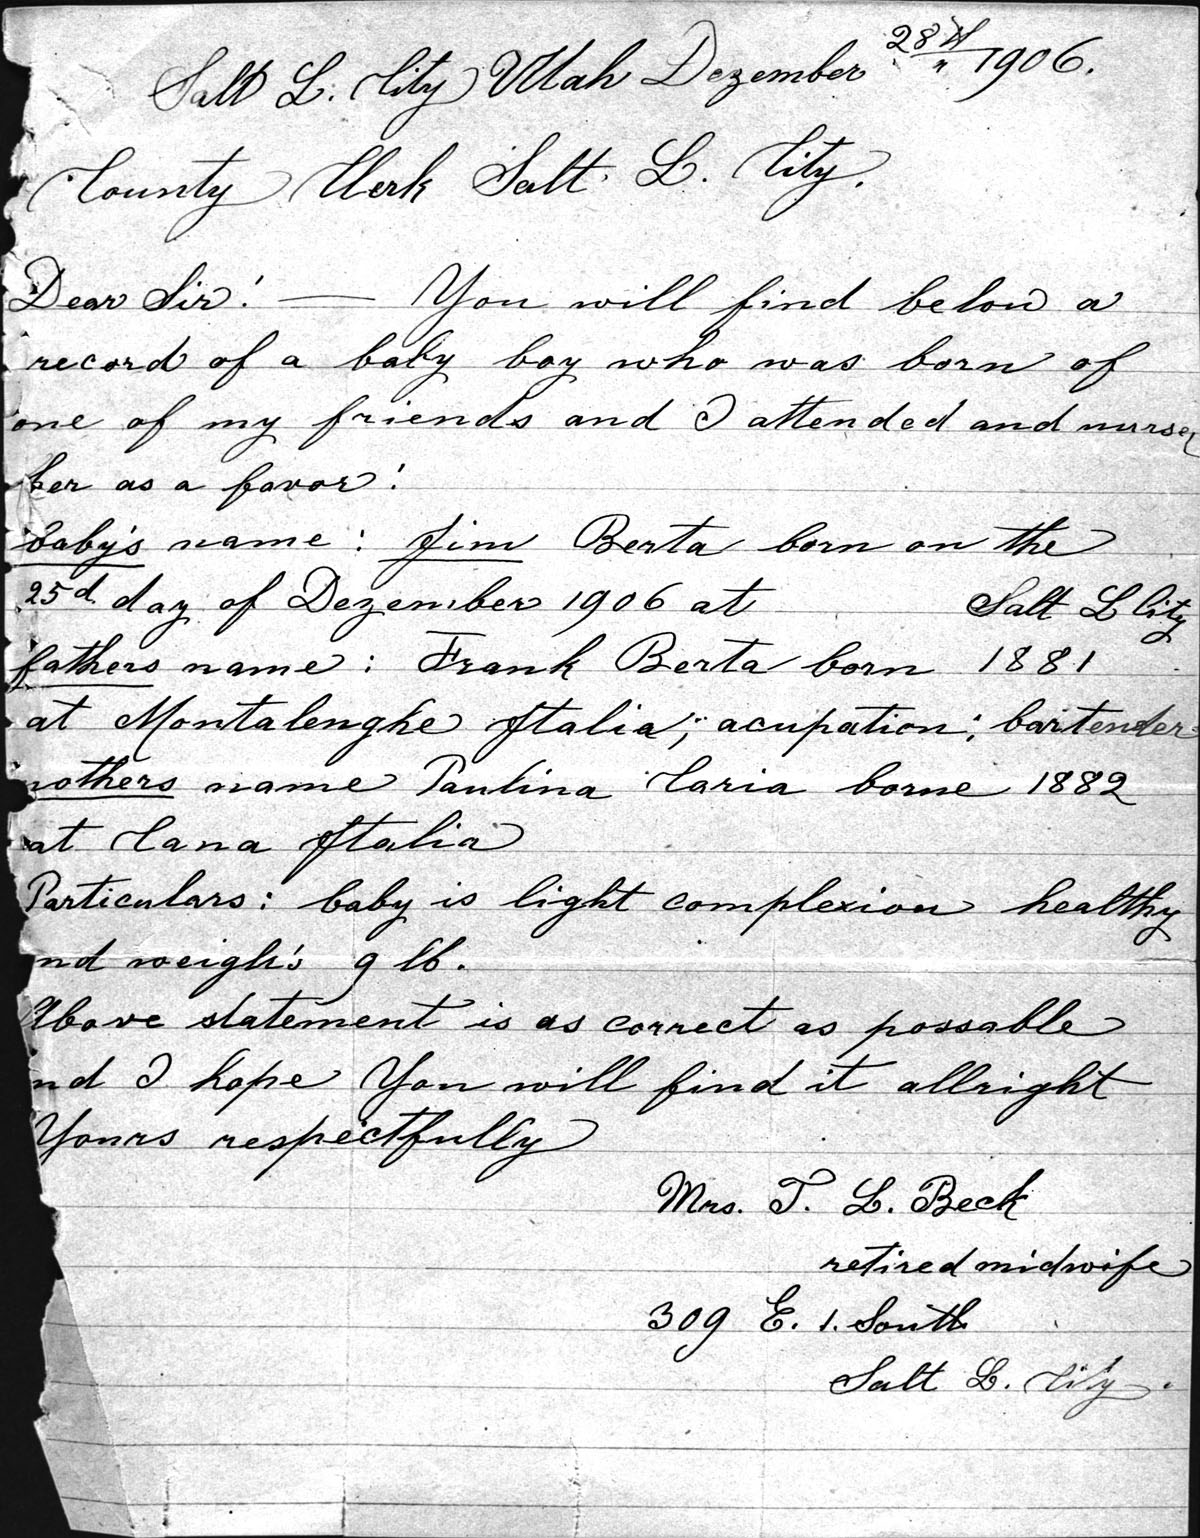 Salt L. City Utah Dezember 28th 1906.
County Clerk Salt L. City.
Dear Sir! — You will find below a
record of a baby boy who was born of
one of my friends and I attended and nursed
her as a favor!
baby's name: Jim Berta born on the
25d day of Dezember 1906 at Salt L City
fathers name: Frank Berta born 1881
at Montalenghe Italia; acupation; bartender
mothers name Paulina Caria borne 1882
at Cana Italia
Particulars: baby is light complexion healthy
nd weigh's 9 lb.
Above statement is as correct as possable
nd I hope You will find it allright
Yours respectfully
Mrs. T. L. Beck
retired midwife
309 E. 1. South
Salt L. City.